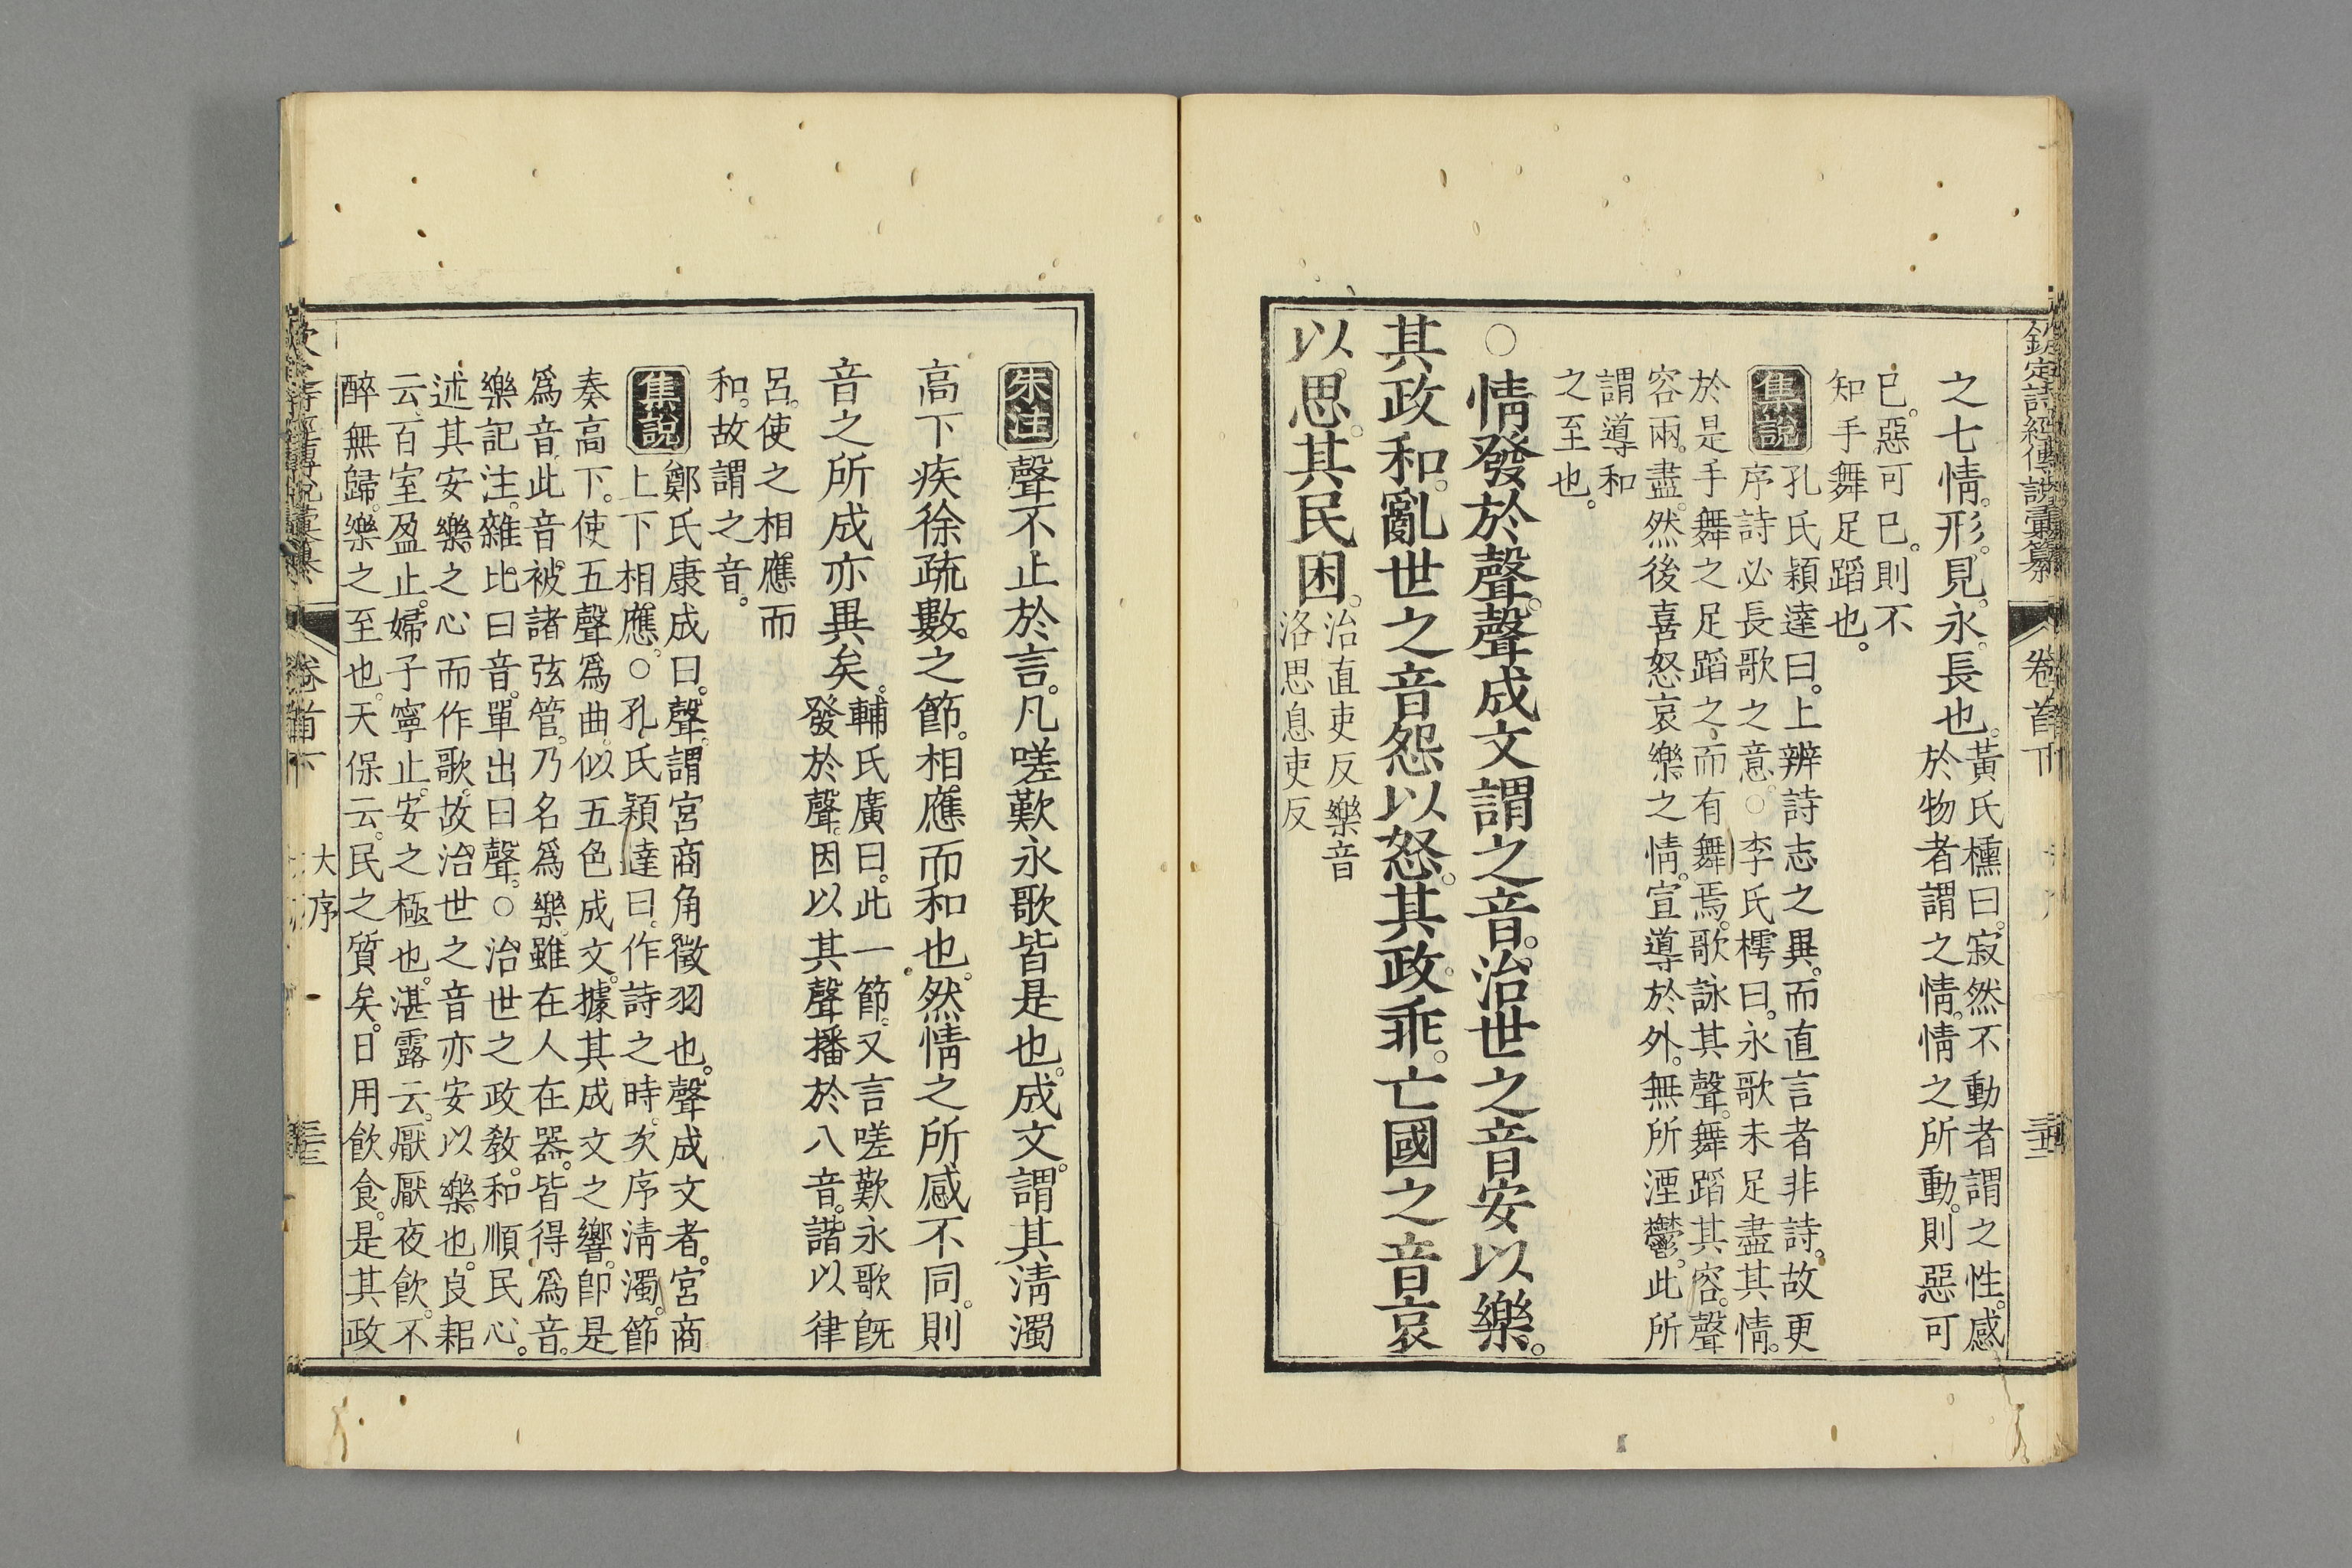 欽定詩經傳說彙纂　卷首下
之七情。形。見。永。長也。
黃氏櫄曰。寂然不動者謂之性。感
於物者謂之情。情之所動。則惡可
已。惡可已。則不
知手舞足蹈也。
集說
孔氏穎達曰。上辨詩志之異。而直言者非詩。故更
序詩必長歌之意。○李氏樗曰。永歌未足盡其情。
於是手舞之足蹈之。而有舞焉。歌詠其聲。舞蹈其容。聲
容兩盡。然後喜怒哀樂之情。宣導於外。無所湮鬱。此所
謂導和
之至也。
○情發於聲。聲成文謂之音。治世之音安以樂。
其政和。亂世之音怨以怒。其政乖。亡國之音哀
以思。其民困。
治直吏反樂音
洛思息吏反
朱注
聲不止於言。凡嗟歎永歌皆是也。成文。謂其淸濁
高下疾徐疏數之節。相應而和也。然情之所感不同。則
音之所成亦異矣。
輔氏廣曰。此一節。又言嗟歎永歌旣
發於聲。因以其聲播於八音。諧以律
呂。使之相應而
和。故謂之音。
集說
鄭氏康成曰。聲。謂宮商角徵羽也。聲成文者。宮商
上下相應。○孔氏穎達曰。作詩之時。次序淸濁。節
奏高下。使五聲爲曲。似五色成文。據其成文之響。卽是
爲音。此音被諸弦管。乃名爲樂。雖在人在器。皆得爲音。
樂記注。雜比曰音。單出曰聲。○治世之政敎。和順民心。
述其安樂之心而作歌。故治世之音亦安以樂也。良耜
云。百室盈止。婦子寧止。安之極也。湛露云。厭厭夜飮。不
醉無歸。樂之至也。天保云。民之質矣。日用飮食。是其政
卷首下　大序